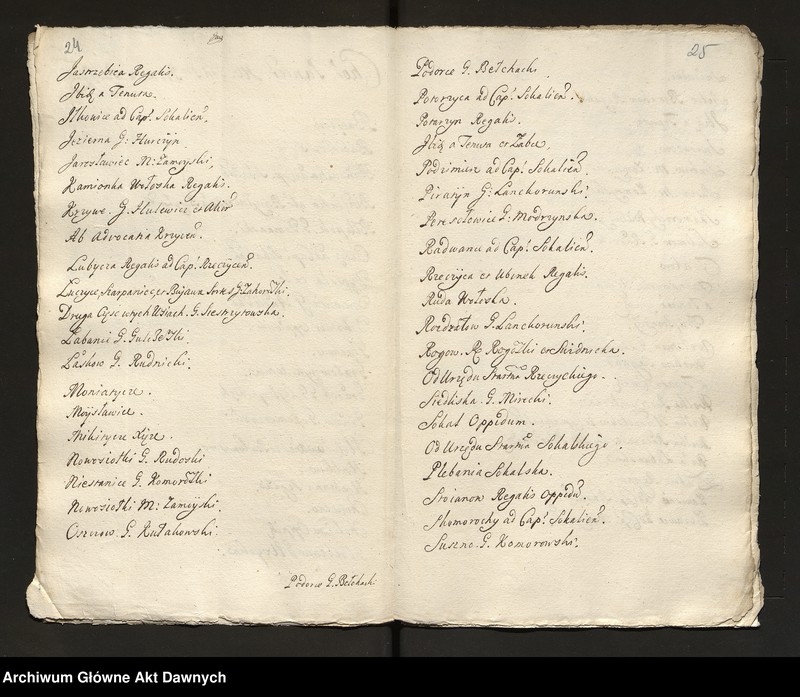 24
Jastrzebica Regalis.
Jbid a Tenuta.
Ilkowice ad Capt. Sokalien.
Jezierna G: Hurczyn
Jarosławiec M: Zamoyski,
Kamionka Wołoska Regalis.
Krzywe. G. Hulewicz et Alior
Ab Advocatia Krzyczen.
Lubycza Regalis ad Capt. Rzeczycen.
Łuczyce, Skarpanice, et Bujawa Sortes G. Zahorski.
Druga Częsc w tych Wsiach. G. Siesmyrowska.
Łabanie G. Gulczewski.
Łaskow G. Rudnicki.
Moniatycze.
Moysławice.
Mikitycze Xięże.
Nowosiołki G. Rudoski
Niestanice G. Komorowski
Nowosiołki M: Zamoyski
Oserdow G. Kułakowski
Podorce G. Bełchacki
25
Podorce G. Bełchacki
Potorzyca ad Capt. Sokalien.
Poturzyn Regalis.
Jbid a Tenuta et Zabcze,
Podzimierz ad Capt. Sokalien.
Piratyn G: Lanckorunski.
Peresołowice G: Modrzynska.
Radwance ad Capt. Sokalien.
Rzeczyca et Ubinek Regalis.
Ruda Wołoska.
Rozdzałow G. Lanckorunski.
Rogow. Rogoski et Swidnicka.
Od Urzędu Starstwa Rzeczyckiego.
Siedliska G. Mirecki.
Sokal Oppidum.
Od Urzędu Starstwa Sokalskiego.
Plebania Sokalska.
Stoianow Regalis Oppidu.
Skomorochy ad Capt. Sokalien.
Suszno G. Komorowski.
Archiwum Główne Akt Dawnych